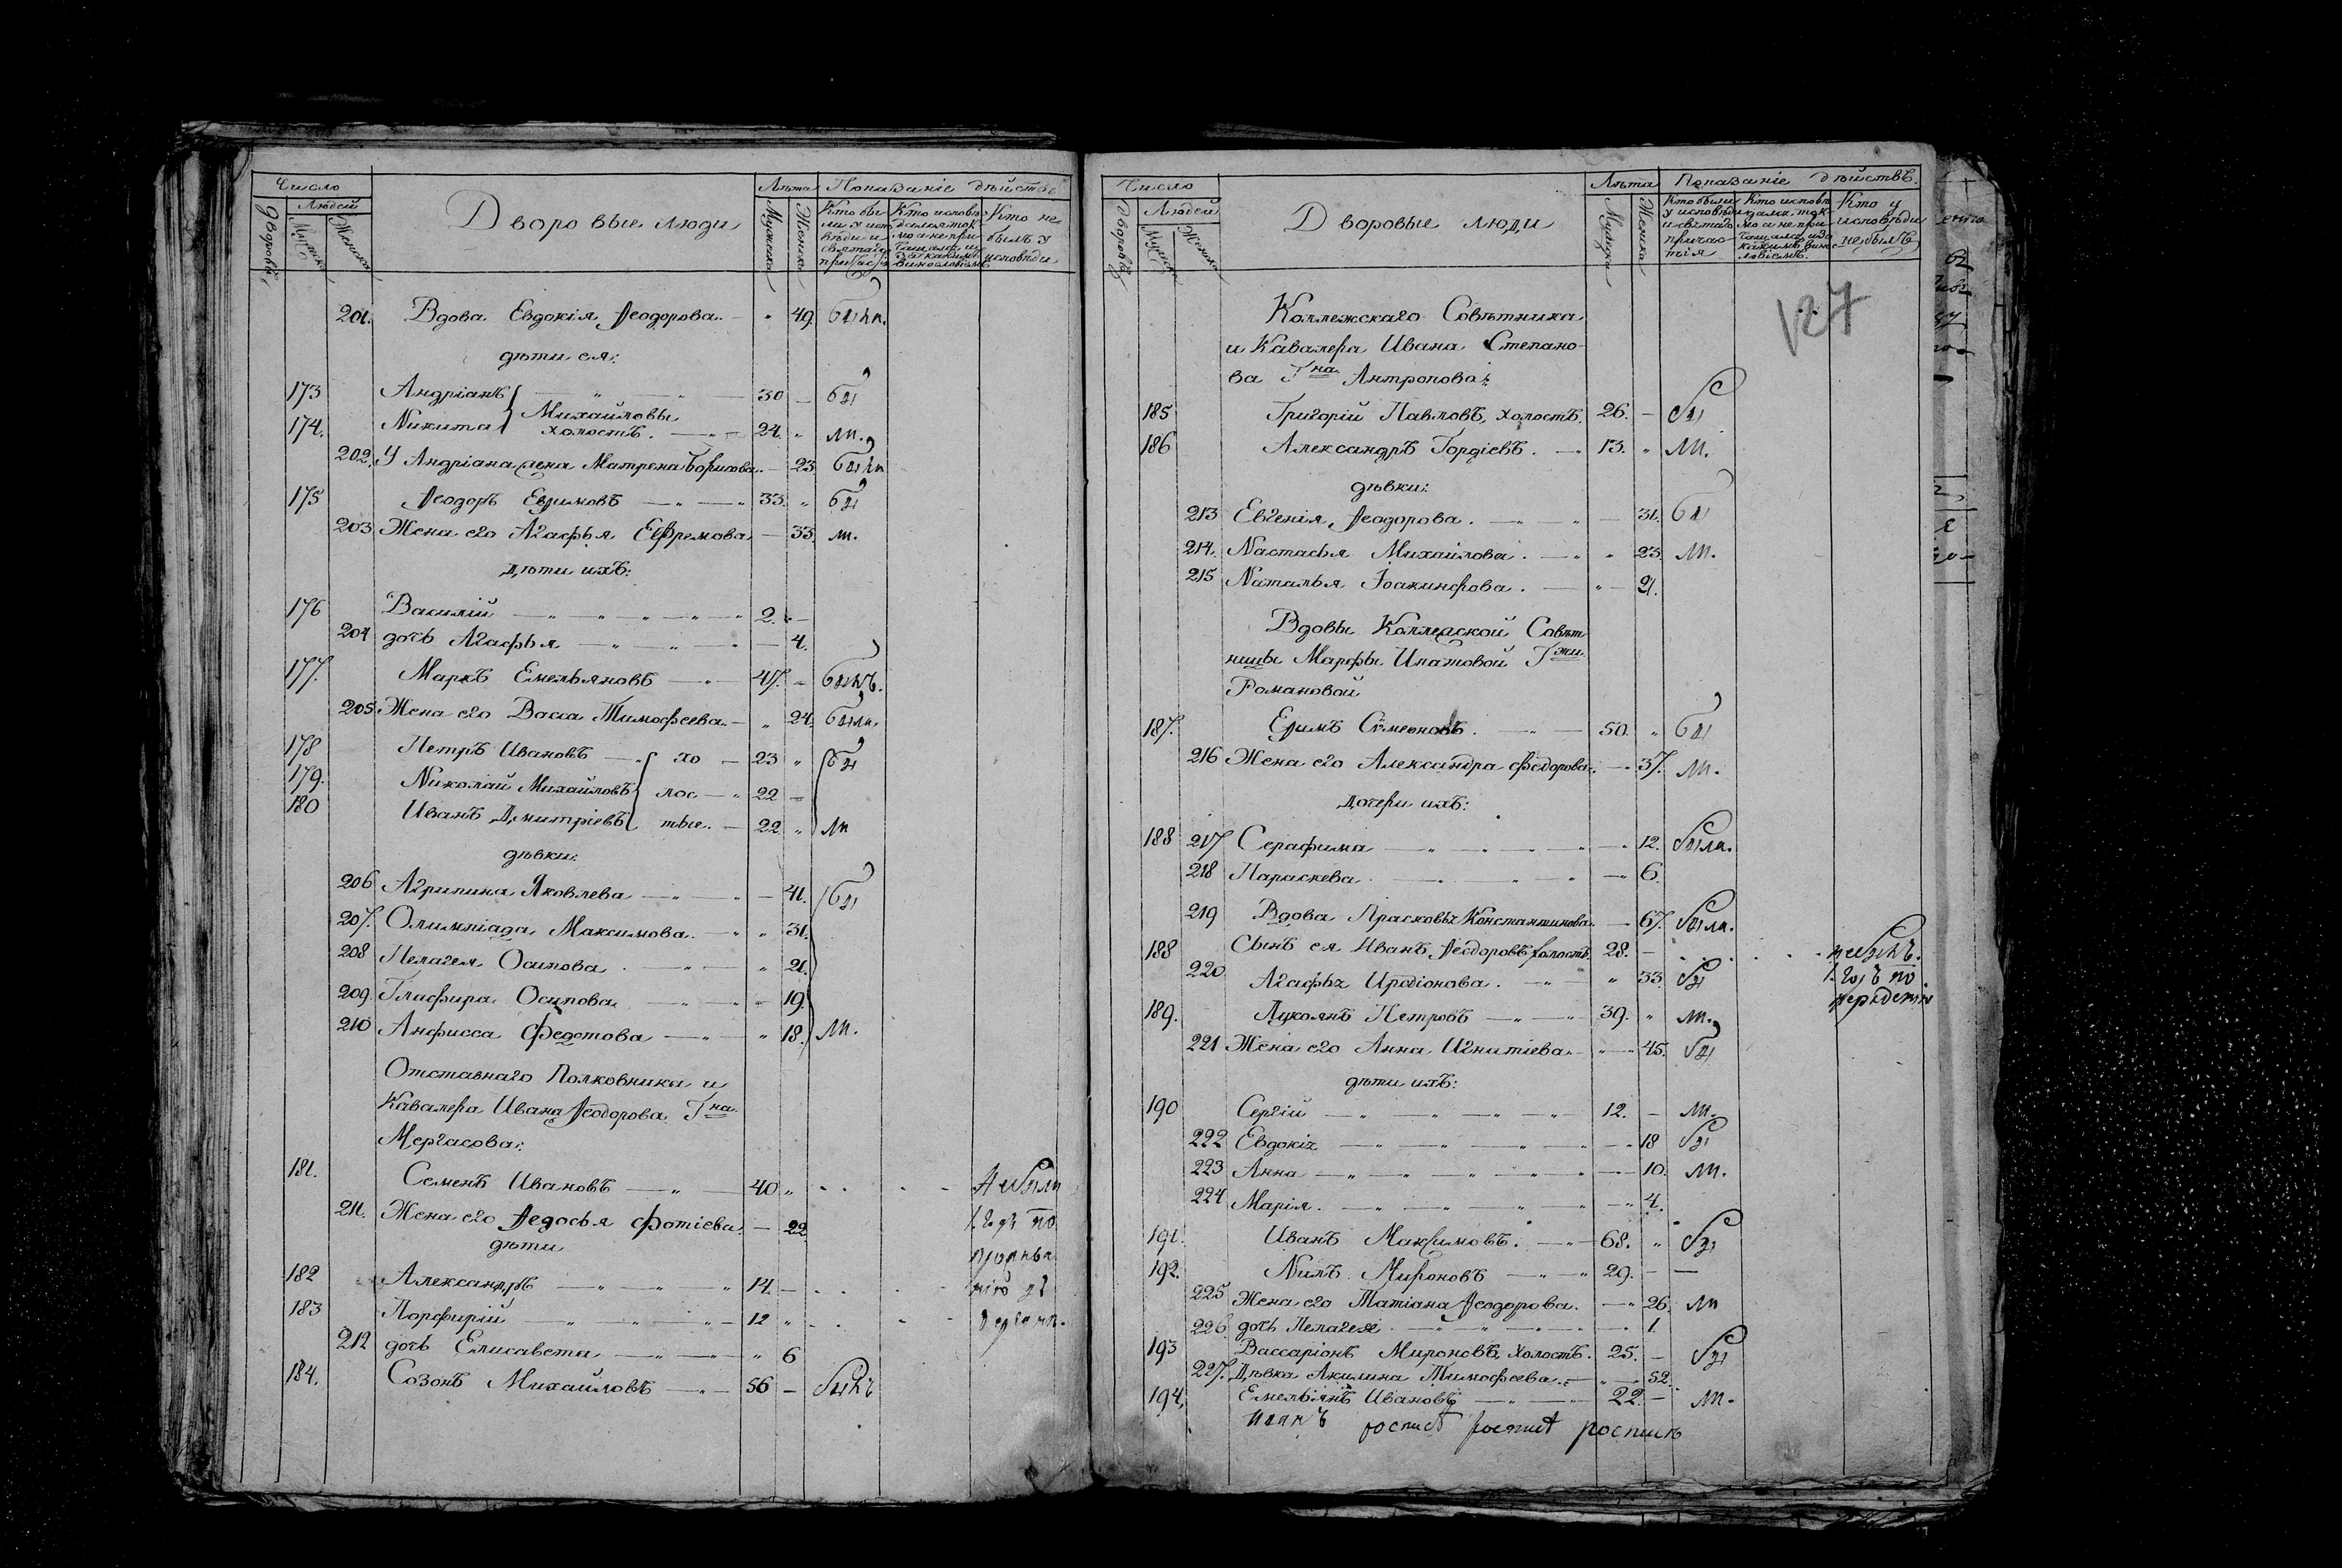 Число
Людей
Дворовъ
Мужеска
Женска
Дворовые люди
Лѣта
Мужеска
Женска
Показаніе дѣйствъ
Кто бы
ли у испо
вѣди и
святаго
Кто исповѣ
дался ток
мо а не при
чащался, и
за какимъ
винословіемъ
Кто не
былъ у
исповѣди
201. Вдова Евдокія Ѳеодорова. 49. была.
дѣти ея:
173 Андріанъ 30 бы
Михайловы
174. Никита холостъ. 24. ли.
202. У Андріана жена Матрена Борисова. 23 была
175 Ѳеодоръ Евѳимовъ 33. бы
203 Жена его Агафья Ефремова 33. ли.
Дѣти ихъ:
176 Василій 2.
204 дочь Агафья 4.
177. Маркъ Емельяновъ 47. былъ.
205 Жена его Васса Тимофеева. 24. была.
178 Петръ Ивановъ хо 23 бы
179. Николай Михайловъ лос 22
180 Иванъ Дмитріевъ тые. 22 ли
дѣвки:
206 Агрипина Яковлева 41. бы
207. Олимпіада Максимова. 31.
208 Пелагея Осипова 21.
209. Глафира Осипова 19.
210 Анфисса Федотова 18. ли.
Отставнаго Полковника и
Кавалера Ивана Ѳеодорова Гна
Мергасова:
181. Семенъ Ивановъ 40 не были
211. Жена его Ѳедосья Фотіева 22 1. годъ по
дѣти
182 Александръ 14.
183 Порфирій 12
212 дочь Елисавета 6
184. Созонъ Михайловъ 56 былъ
Число
Людей
Дворовъ
Мужеска
Женска
Дворовые люди
Лѣта
Мужеска
Женска
Показаніе дѣйствъ.
Кто были
у исповѣди
и святаго
причас
тія
Кто исповѣ
дался ток
мо а не при
чащался, и за
какимъ винос
ловіемъ.
Кто у
исповѣди
не былъ
127
Коллежскаго Совѣтника
и Кавалера Ивана Степано
ва Гна Антропова:
185 Григорій Павловъ, холостъ. 26. бы
186 Александръ Гордіевъ. 13. ли.
дѣвки:
213 Евгенія Ѳеодорова. 31. бы
214. Настасья Михайлова. 23. ли.
215 Наталья Іоакинфова. 21.
Вдовы Коллежской Совѣт
ницы Марфы Ипатовой Гжи
Романовой
187. Евѳимъ Сѵмеоновъ. 50. бы
216 Жена его Александра Федорова. 37. ли.
Дочери ихъ:
188 217 Серафима 12. была.
218 Параскева 6.
219 Вдова Прасковья Константинова. 67. была.
188 Сынъ ея Иванъ Ѳеодоровъ холостъ. 28. не былъ.
220 Агафья Иродіонова. 33. бы 1. годъ по
189. Лукоянъ Петровъ 39. ли. нерадѣнію
221 Жена его Анна Игнатіева. 45. бы
дѣти ихъ:
190 Сергій 12. ли.
222 Евдокія 18 бы
223 Анна 10. ли.
224 Марія. 4.
191. Иванъ Максимовъ. 68. бы
192. Нилъ Мироновъ 29.
225 Жена его Татіана Ѳеодорова. 26. ли
226 дочь Пелагея 1.
193 Вассаріонъ Мироновъ, холостъ. 25. бы
227. Дѣвка Акилина Тимофеева. 52.
194. Емельянъ Ивановъ 22. ли.
роспись роспись роспись